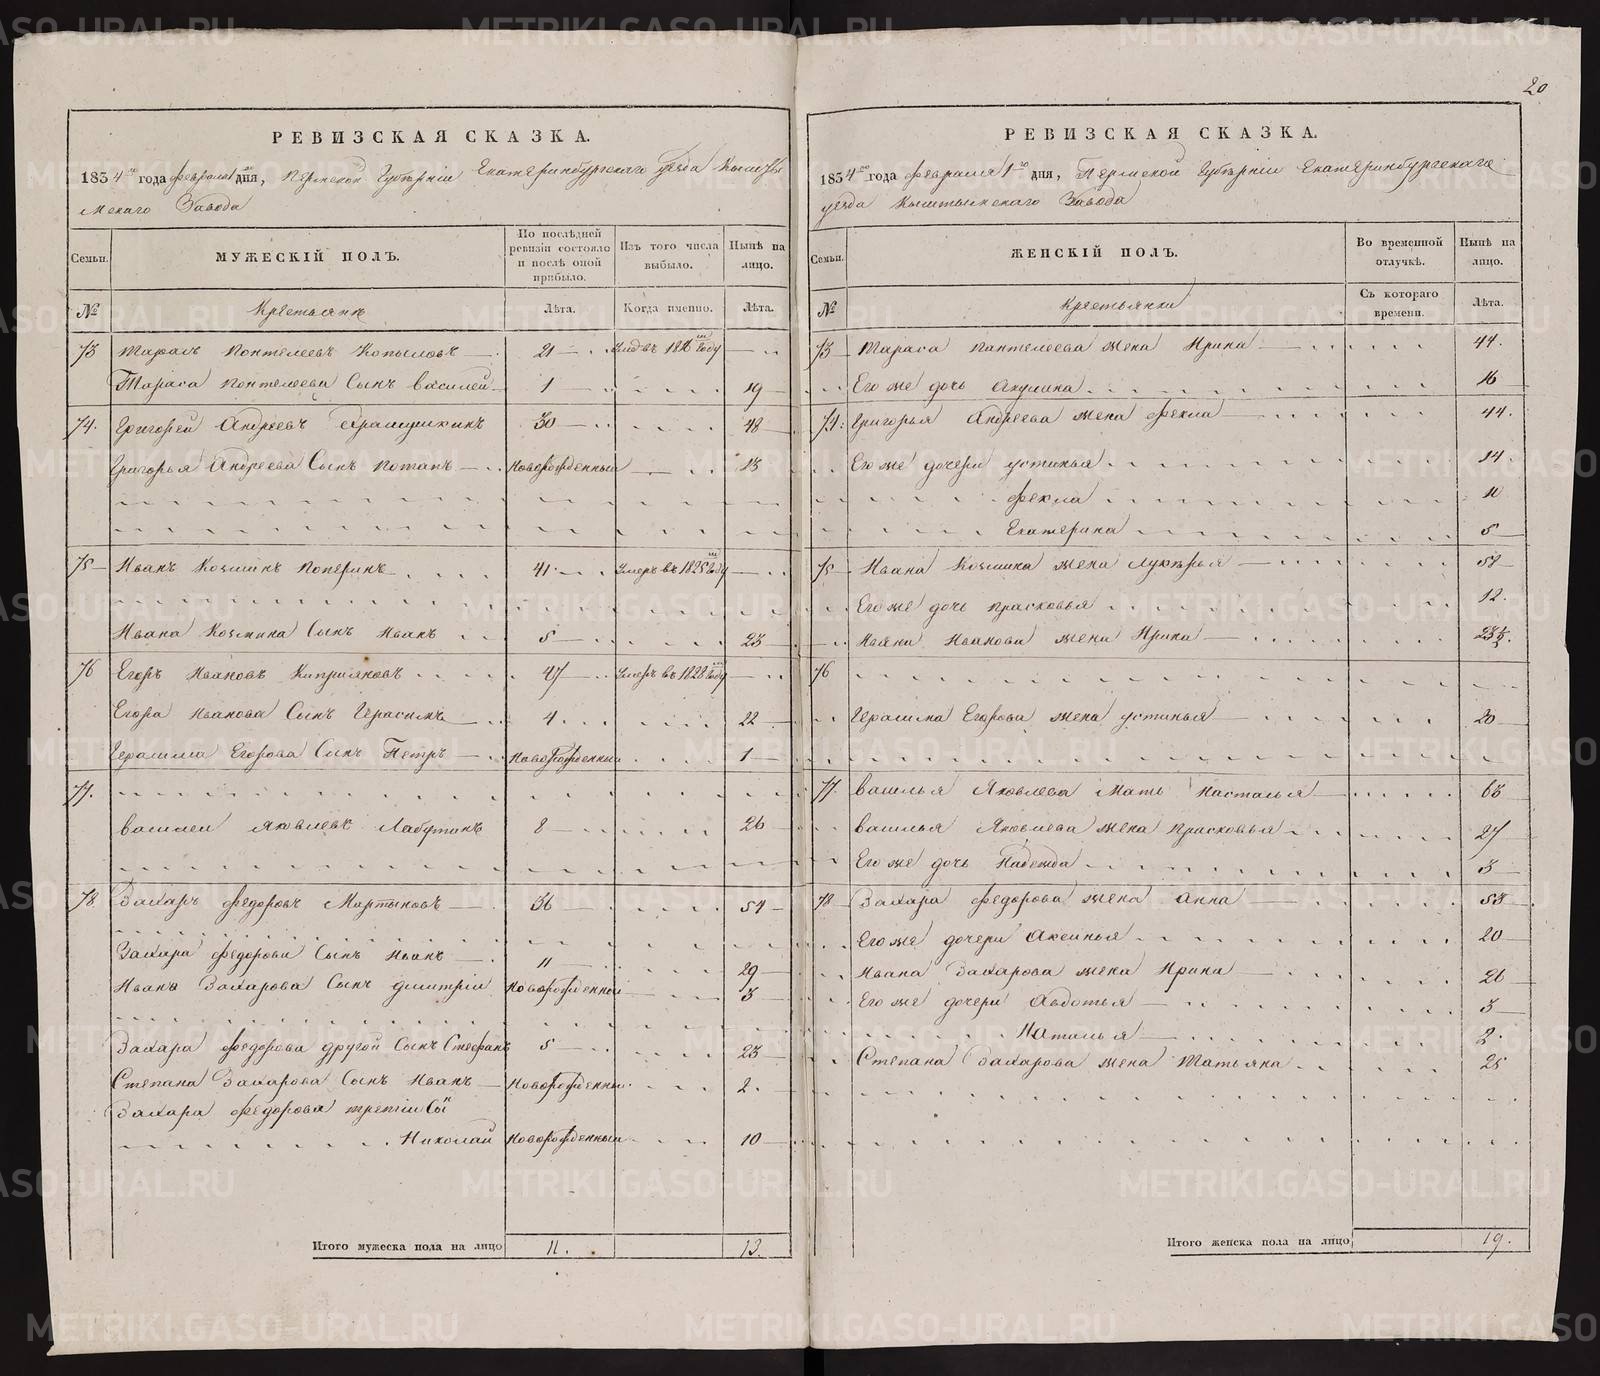 20
РЕВИЗСКАЯ СКАЗКА.
1834го года февраля 1го дня, Пермской Губерніи Екатеринбургскаго уезда Кышты
мскаго Завода
Семьи.
МУЖЕСКІЙ ПОЛЪ.
По послѣдней ревизіи состояло и послѣ оной прибыло.
Изъ того числа выбыло.
Нынѣ на лицо.
№
Крестьянъ
Лѣта.
Когда именно.
Лѣта.
73 Тарасъ Понтелеевъ Копыловъ 21 1816 году
Тараса Понтелеева Сынъ Василей 1 19
74. Григорей Андреевъ 30 48
Григорья Андреева Сынъ Потапъ Новорожденный 13
75 Иванъ Козминъ Поперинъ 41 Умеръ въ 1825 году
Ивана Козмина Сынъ Иванъ 5 23
76 Егоръ Ивановъ Киприяновъ 47 Умеръ въ 1828 году
Егора Иванова Сынъ Герасимъ 4 22
Герасима Егорова Сынъ Петръ Новорожденный 1
77.
Василеи Яковлевъ Лабутинъ 8 26
78. Захаръ Федоровъ Мартыновъ 36 54
Захара Федорова Сынъ Иванъ 11 29
Иванъ Захарова Сынъ Димитріи Новорожденной 3
Захара Федорова другой Сынъ Стефанъ 5 23
Степана Захарова Сынъ Иванъ Новорожденный 2.
Захара Федорова третіи Сы
Николай Новорожденный 10
Итого мужеска пола на лицо 11. 13.
РЕВИЗСКАЯ СКАЗКА.
1834го года февраля 1го дня, Пермской Губерніи Екатеринбургскаго
уезда Кыштымскаго Завода
Семьи.
ЖЕНСКІЙ ПОЛЪ.
Во временной отлучкѣ.
Нынѣ на лицо.
№
Крестьянки
Съ котораго времени.
Лѣта.
73 Тараса Пантелеева жена Ирина 44.
Его же дочь Акулина 16
74. Григорья Андреева жена Фекла 44.
Его же дочери Устинья 14
Фекла 10
Екатерина 5
75 Ивана Козмина жена Лукерья
Его же дочь Прасковья 12.
Ивана Иванова жена Ирина
76
Герасима Егорова жена Устинья 20
77. Василья Яковлева Мать Насталья 63
Василья Яковлева жена Прасковья 27
Его же дочь Надежда 3
78 Захара Федорова жена Анна 53
Его же дочери Аксинья 20
Ивана Захарова жена Ирина 26
Его же дочери Авдотья 3
Наталья 2.
Степана Захарова жена Татьяна 25
Итого женска пола на лицо 19.
METRIKI.GASO-URAL.RU